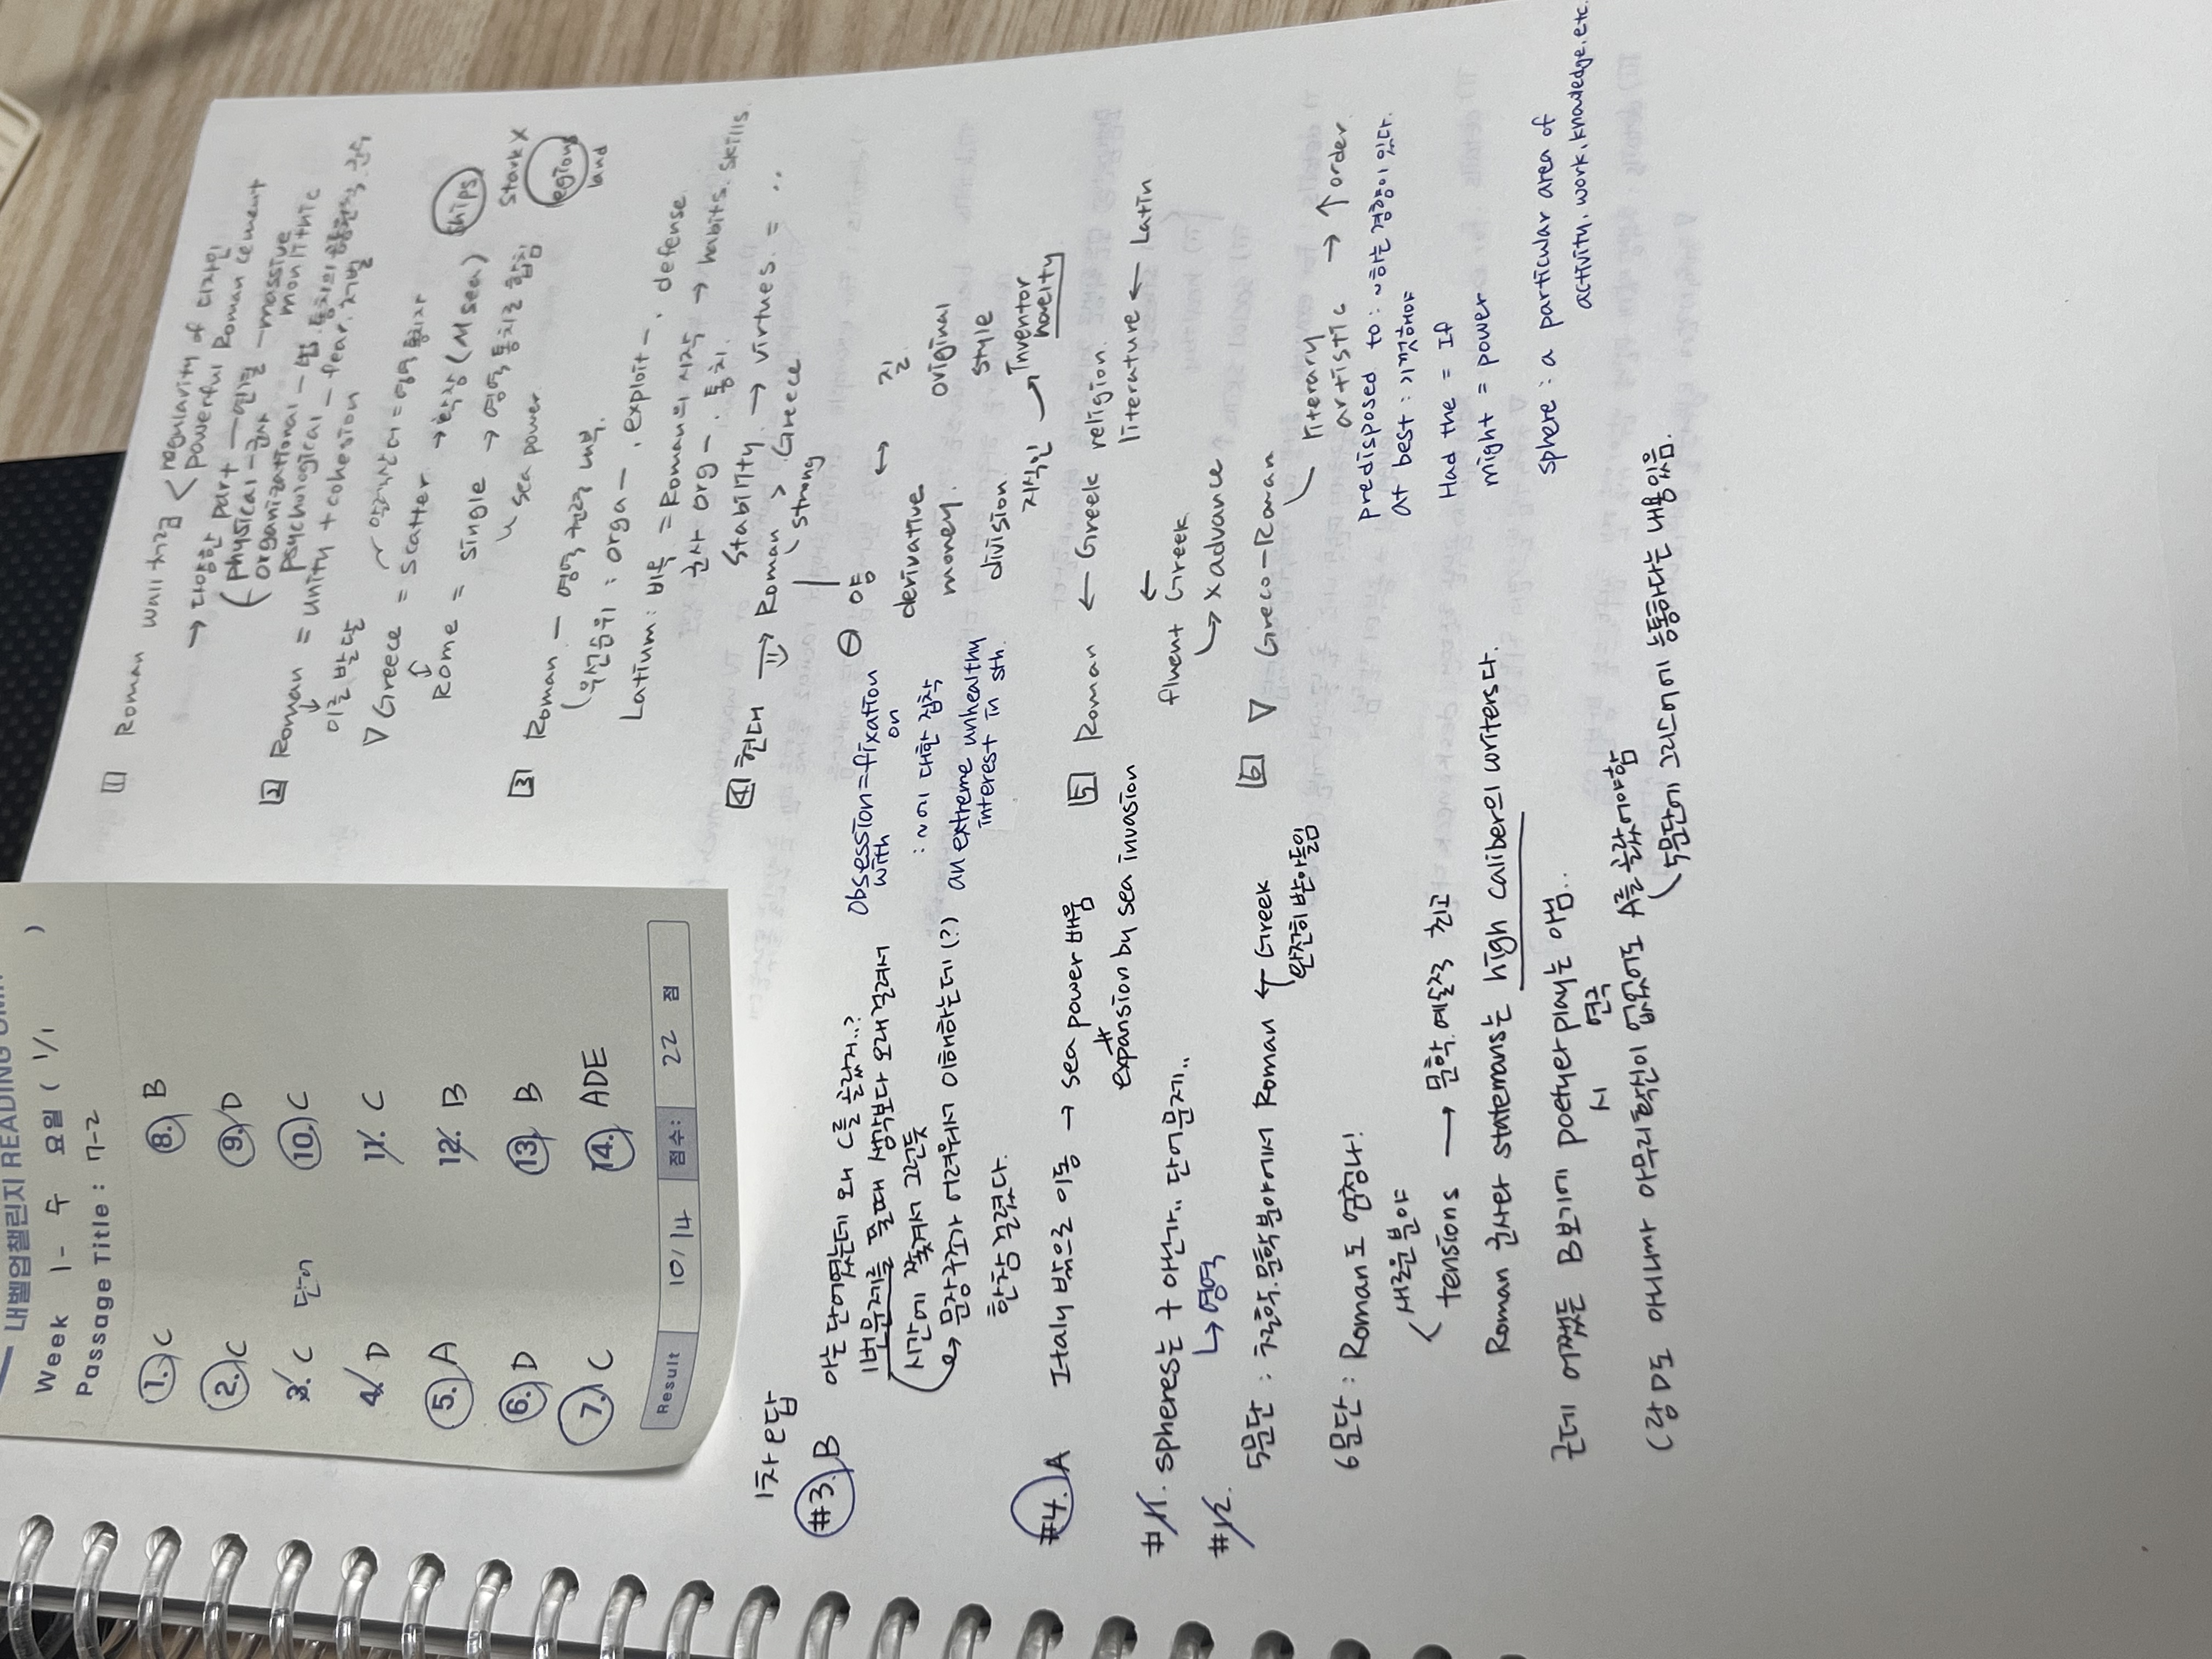 내벨업챌린지 READING
Week 1 - 수 요일 ( 1/1 )
Passage Title : 7-2
1. C
2. C
3. C 단어
4. D
5. A
6. D
7. C
8. B
9. D
10. C
11. C
12. B
13. B
14. ADE
Result 10/14 점수: 22 점
1차 오답
#3. B 아는 단어였는데 왜 C를 골랐지..?
배점문제를 풀때 생각보다 오래걸려서
시간에 쫓겨서 그런듯
→ 문장구조가 어려워서 이해하는데(?)
한참 걸렸다.
#4. A Italy 밖으로 이동 → sea power 배움
≠
expansion by sea invasion
#11. spheres는 구 아닌가.. 단어문제..
↳ 영역
#12.
5문단 : 철학.문학분야에서 Roman ← Greek
완전히 받아들임
6문단 : Roman도 엄청나!
새로운 분야
tensions → 문학.예술적 진보
Roman 군사와 statemans는 high caliber의 writers다.
근데 어쨌든 B보기에 poet, play는 아님..
시 극본
(걍 D도 아예 싸 아무리 확신이 없었어도 A를 골랐어야함
누문단에 그리스어에 능통하다는 내용있음.)
1 Roman wall 차근 < regularity of 디자인
powerful Roman cement
→ 다양한 part — 연관
( physical - 건물 - massive
organizational - 군사 monolithic
psychological - 법.통치
2 Roman = unity + cohesion - fear.
이른 발달
▽ Greece = scatter
Rome = single → 영역 통치로 확립
→ 확장 (M sea) ships
stark X
↳ sea power.
legions
land
3 Roman - 영역 권력 내부.
(우선순위 : orga - . exploit - . defense
Latium : 정복 = Roman의 시작
군사 org - . 통치. → habits. skills.
4 현대 ⇒ stability → virtues. = ..
Roman > Greece
strong
obsession = fixation
with on
: ~에 대한 집착
an extreme unhealthy
interest in sth.
⊖ 양 ↔ 질
derivative original
money. style
division.
지식인 → inventor
novelty
5 Roman ← Greek religion.
literature ← Latin
←
fluent Greek
↳ x advance
6 ▽ Greco-Roman
literary → ↑ order
artistic
predisposed to : ~하는 경향이 있다
at best : 기껏해야
Had the = If
might = power
sphere : a particular area of
activity, work, knowledge, etc.